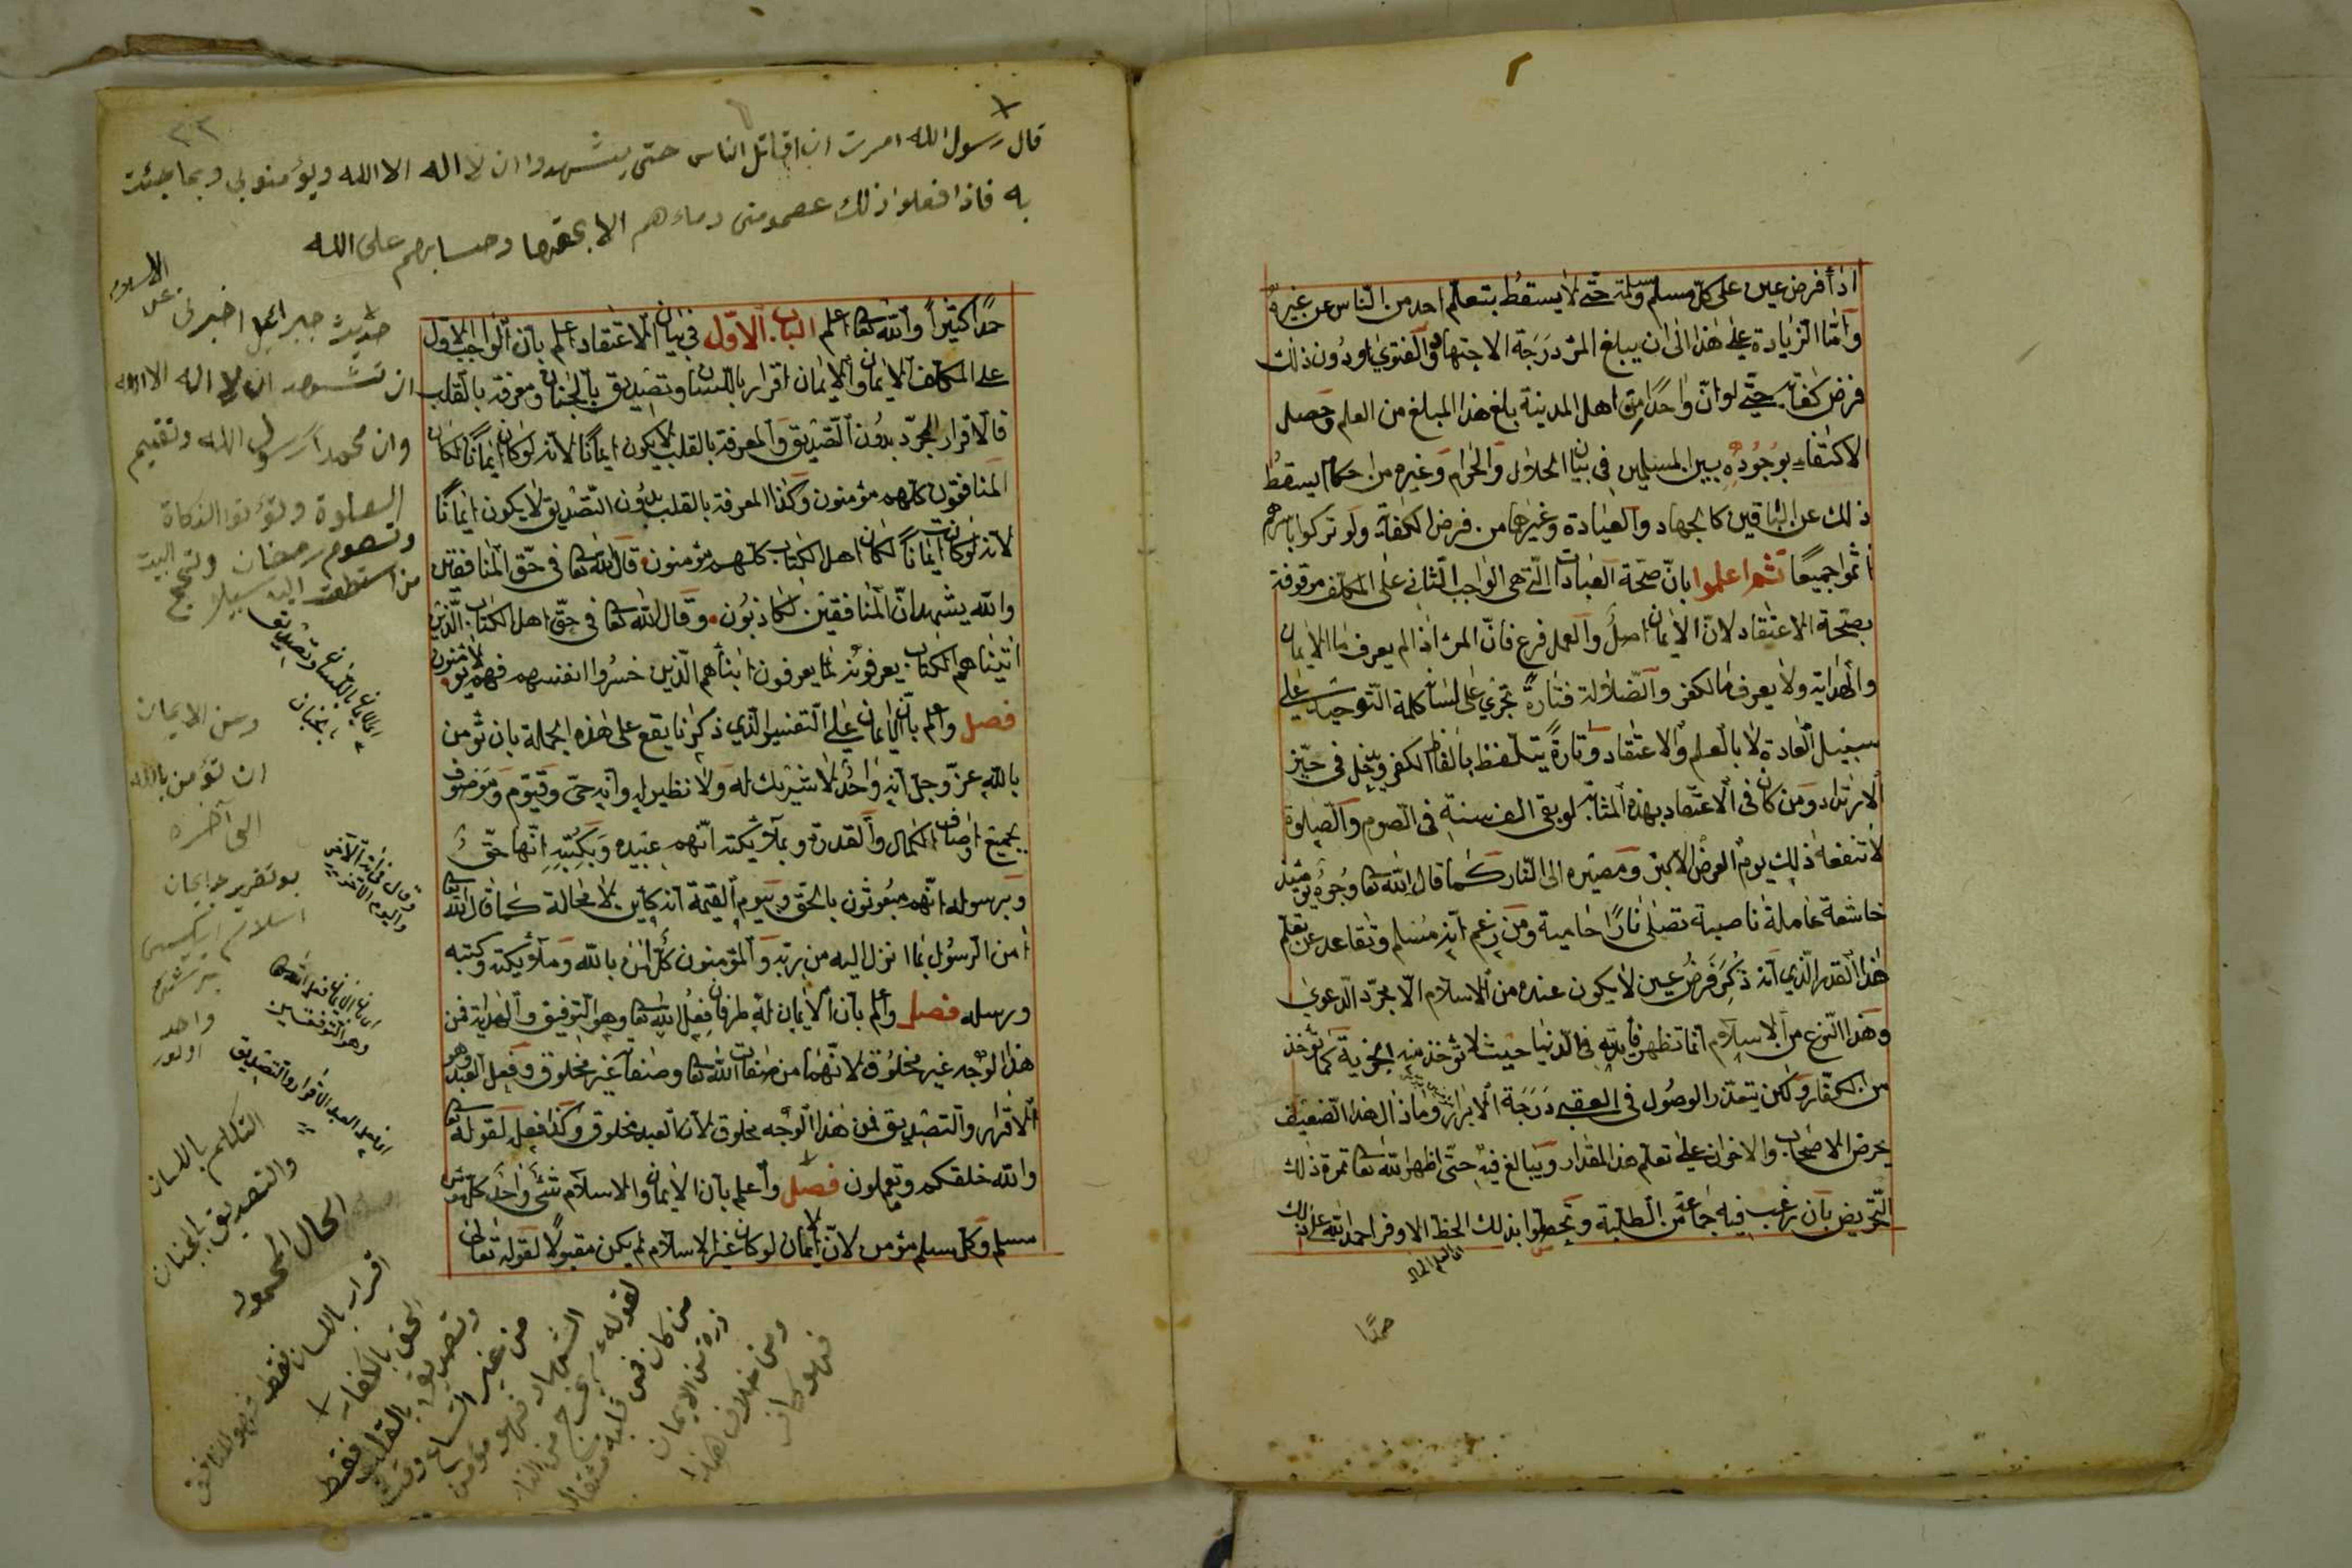 ٢
اذا فرض عين على كل مسلم ومسلمة حتى لا يسقط بتعلم احد من الناس عن غيره
واما الزيادة على هذا الى ان يبلغ المرء درجة الاجتهاد والفتوى او دون ذلك
فرض كفاية حتى لو ان واحدا من اهل المدينة بلغ هذا المبلغ من العلم وحصل
الاكتفاء بوجوده بين المسلمين في بيان الحلال والحرام وغيره من احكام يسقط
ذلك عن الباقين كالجهاد والعيادة وغيرهما من فرض الكفاية ولو تركوا باسرهم
اثموا جميعا ثم اعلموا بان صحة العبادات التي هي الواجب الثاني على المكلف موقوفة
بصحة الاعتقاد لان الايمان اصل والعمل فرع فان المرء اذا لم يعرف ما الايمان
والهداية ولا يعرف ما الكفر والضلالة فتارة تجري على لسانه كلمة التوحيد على
سبيل العادة لا بالعلم والاعتقاد وتارة يتلفظ بالفاظ الكفر ويدخل في حيز
الارتداد ومن كان في الاعتقاد بهذه المثابة لو بقي الف سنة في الصوم والصلوة
لا تنفعه ذلك يوم العرض الاكبر ومصيره الى النار كما قال الله تعا وجوه يومئذ
خاشعة عاملة ناصبة تصلى نارا حامية ومن زعم انه مسلم وتقاعد عن تعلم
هذا القدر الذي انه ذكر فرض عين لا يكون عنده من الاسلام الا مجرد الدعوى
وهذا النوع من الاسلام انما تظهر فايدته في الدنيا حيث لا تؤخذ منه الجزية كما تؤخذ
من الكفار ولكن يتعذر الوصول في العقبى درجة الابرار وما ذال هذا الضعيف
يحرض الاصحاب والاخوان على تعلم هذا المقدار ويبالغ فيه حتى اظهر الله تعا ثمرة ذلك
التحريض بان رغب فيه جماعة من الطلبة وتحظوا بذلك الحظ الاوفر احمد الله على ذلك
حمدا
٢٢
قال رسول الله امرت ان اقاتل الناس حتى يشهدوا ان لا اله الا الله ويؤمنوا بي وبما جئت
به فاذا فعلوا ذلك عصموا مني دماءهم الا بحقها وحسابهم على الله
حمدا كثيرا والله تعا اعلم الباب الاول في بيان الاعتقاد اعلم بان الواجب الاول
على المكلف الايمان والايمان اقرار باللسان وتصديق بالجنان ومعرفة بالقلب
فالاقرار المجرد بدون التصديق والمعرفة بالقلب لا يكون ايمانا لانه لو كان ايمانا لكان
المنافقون كلهم مؤمنون وكذا المعرفة بالقلب بدون التصديق لا يكون ايمانا
لانه لو كانت ايمانا لكان اهل الكتاب كلهم مؤمنون قال الله تعا في حق المنافقين
والله يشهد ان المنافقين لكاذبون وقال الله تعا في حق اهل الكتاب الذين
اتيناهم الكتاب يعرفونه كما يعرفون ابناءهم الذين خسروا انفسهم فهم لا يؤمنون
فصل واعلم بان الايمان على التفسير الذي ذكرنا يقع على هذه الجملة بان تؤمن
بالله عز وجل انه واحد لا شريك له ولا نظير له وانه حي وقيوم وموصوف
بجميع اوصاف الكمال والقدرة وبملائكته انهم عبيده وبكتبه انها حق
وبرسوله انهم مبعوثون بالحق وبيوم القيمة انه كاين لا محالة كما قال الله تعا
امن الرسول بما انزل اليه من ربه والمؤمنون كل امن بالله وملائكته وكتبه
ورسله فصل واعلم بان الايمان له طرفان فعل الله تعا وهو التوفيق والهداية فمن
هذا الوجه غير مخلوق لانهما من صفات الله تعا وصفاته غير مخلوق وفعل العبد وهو
الاقرار والتصديق فمن هذا الوجه مخلوق لان العبد مخلوق وكذا فعله لقوله تعا
والله خلقكم وما تعملون فصل واعلم بان الايمان والاسلام شئ واحد كل مؤمن
مسلم وكل مسلم مؤمن لان الايمان لو كان غير الاسلام لم يكن مقبولا لقوله تعالى
حديث جبرائيل اخبرني عن
الاسلام
ان تشهد ان لا اله الا الله
وان محمدا رسول الله وتقيم
الصلوة وتؤتوا الزكاة
وتصوم رمضان وتحج البيت
من استطعت اليه سبيلا
وعن الايمان
ان تؤمن بالله
الى آخره
واحد
اولور
التكلم باللسان
والتصديق بالجنان
اقرار باللسان فقط فهو المنافق
وتصديق بالقلب فقط
من كان في قلبه مثقال
ذرة من الايمان
ومن خلاف هذا
فهو كافر